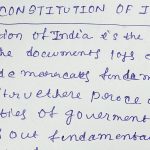 CONSTITUTION OF I
ion of India is the
the documents lays c
d maracats fundam
structure proce
ties of goverment
s out fundamenta